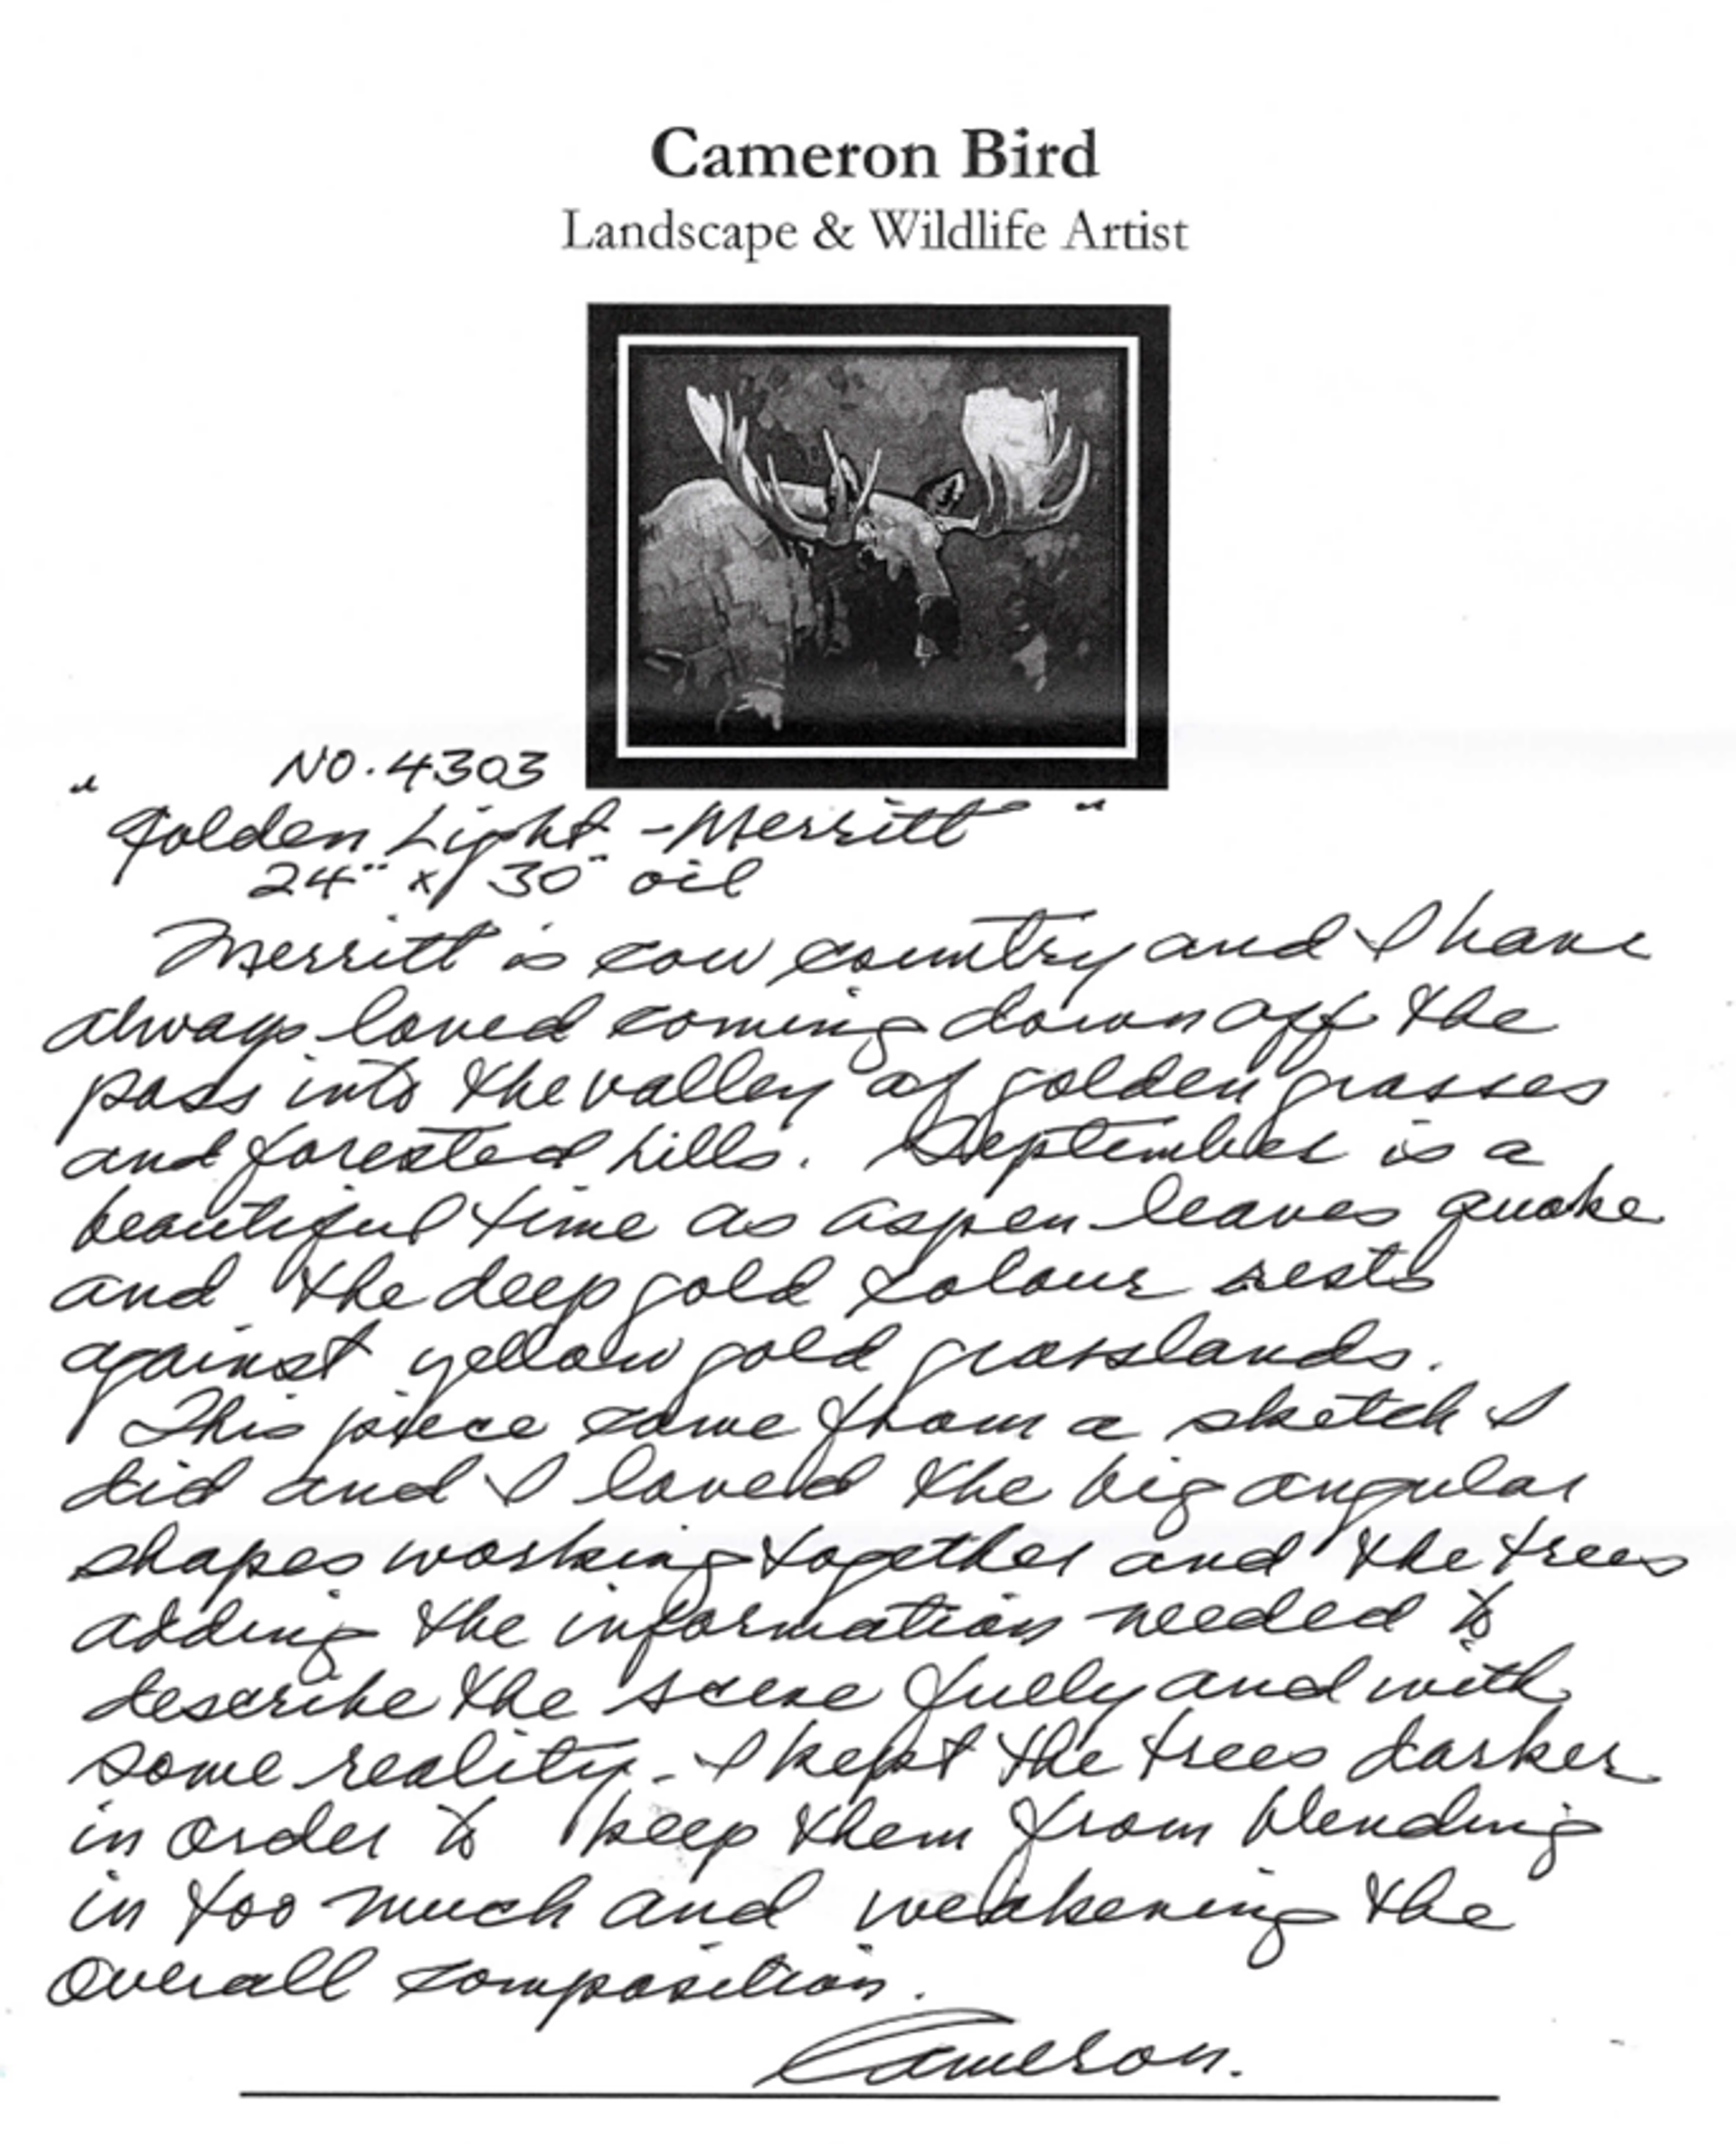 Cameron Bird
Landscape & Wildlife Artist
NO. 4303
"Golden Light - Merritt"
24" x 30" oil
Merritt is cow country and I have
always loved coming down off the
pass into the valley of golden grasses
and forested hills. September is a
beautiful time as aspen leaves quake
and the deep gold colour rests
against yellow gold grasslands.
This piece came from a sketch I
did and I loved the big angular
shapes working together and the trees
adding the information needed to
describe the scene fully and with
some reality. I kept the trees darker
in order to keep them from blending
in too much and weakening the
overall composition.
Cameron.